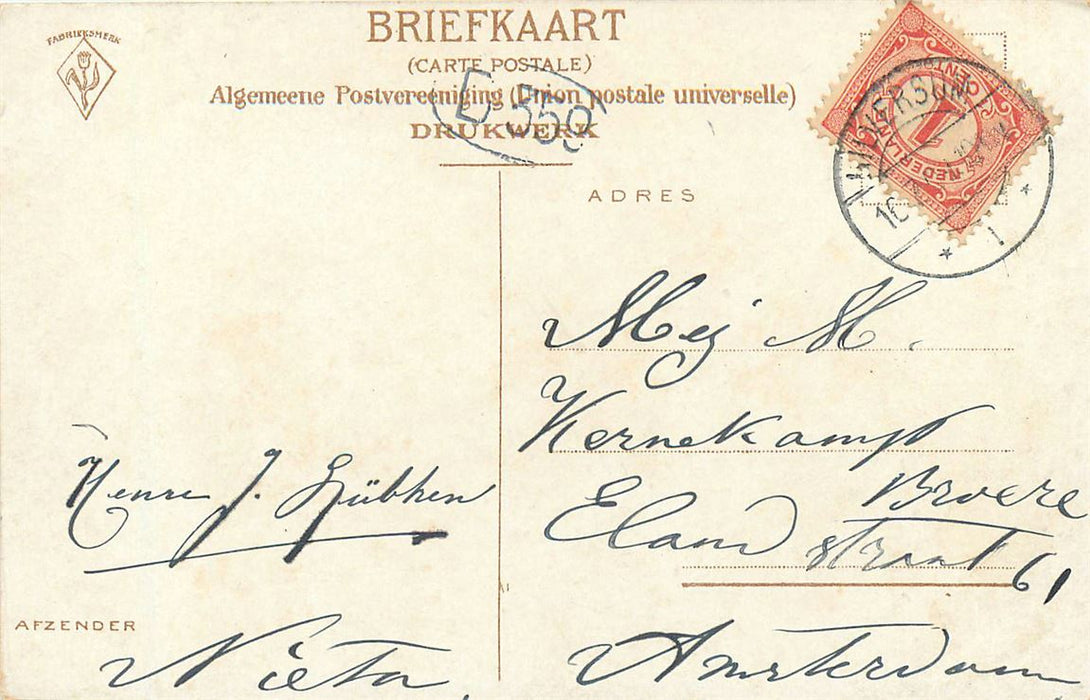 FABRIEKSMERK
BRIEFKAART
(CARTE POSTALE)
Algemeene Postvereeniging (Union postale universelle)
DRUKWERK
D 359
ADRES
NEDERLAND
1
CENT
HILVERSUM
1
Mej M.
Kernekampt
Broere
Eland straat 61
Amsterdam
Henri J. Lübken
AFZENDER
Nieta.